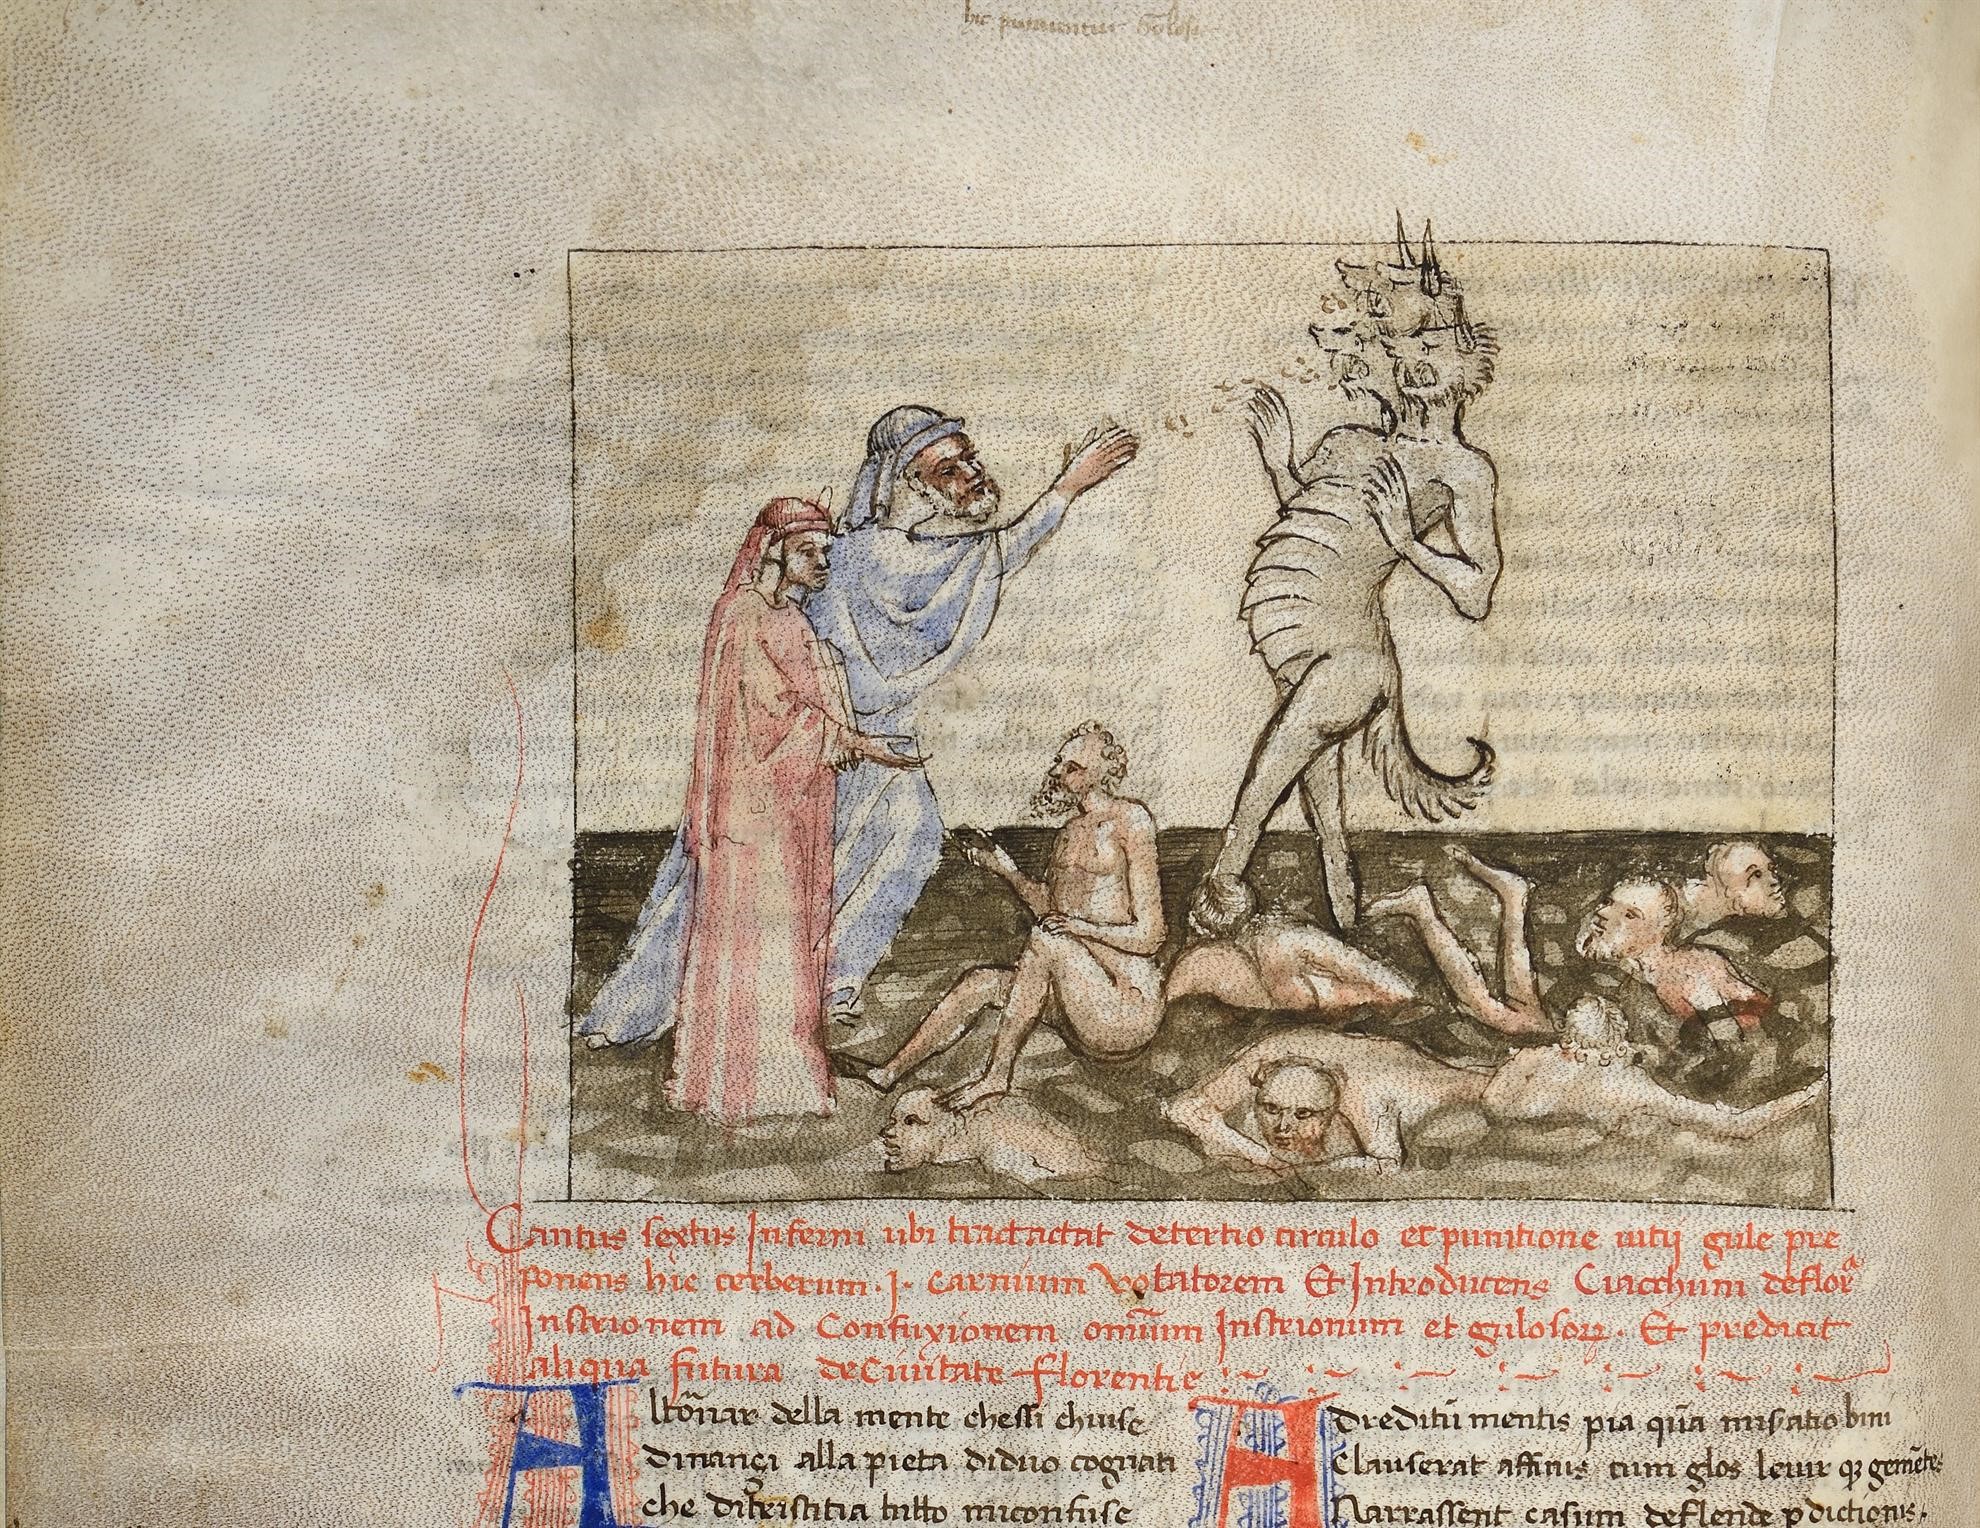 hic puniuntur Golosi
Cantus sextus Inferni ubi tractactat de tertio circulo et punitione uitij gule pre
ponens hic cerberum .i. carnium votatorem Et Introducens Ciacchum de flor
Instrionem ad Confuxionem omium Instrionum et gulosorum. Et predicit
aliqua futura de Ciuitate florentie
Al tornar della mente chessi chiuse
dinançi alla pieta di duo cognati
che di tristitia tutto mi confuse
Ad reditu mentis pia qua misatio bini
Clauserat affinis cum glos leuir q gemetes
Narrassent casum deflende pdictionis.